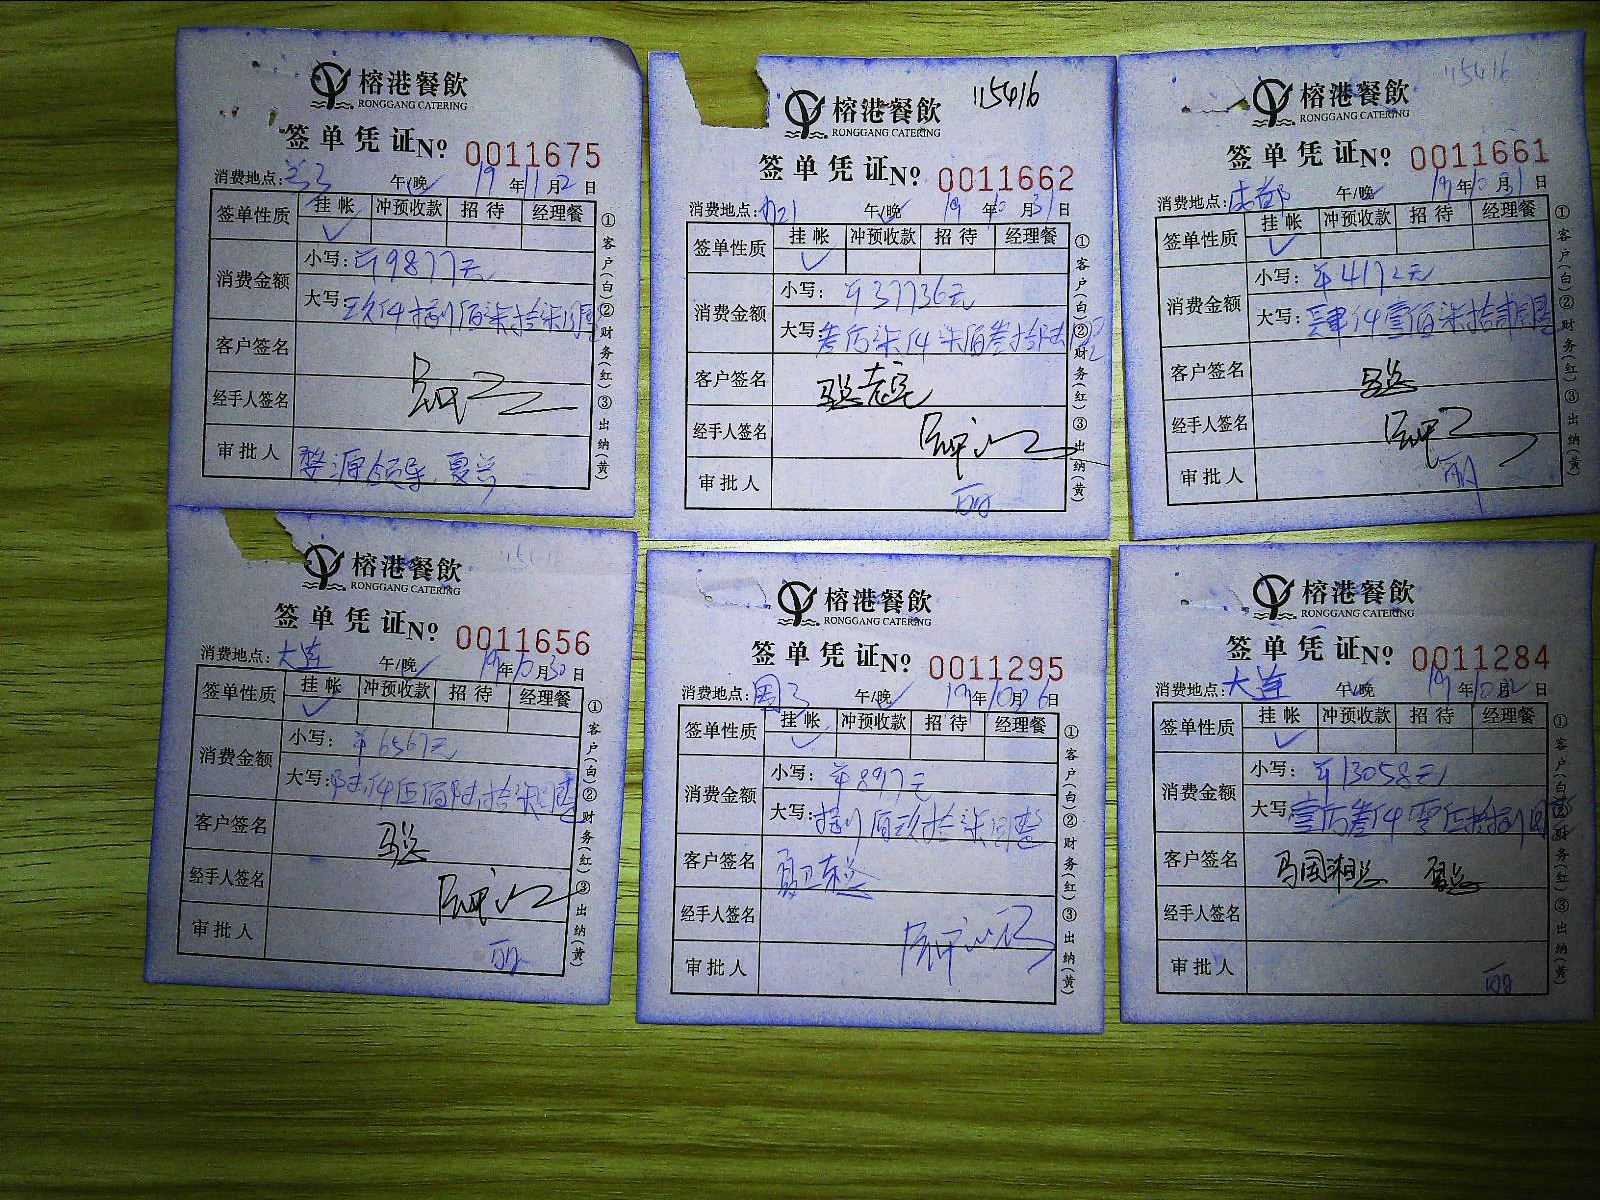 榕港餐飲
RONGGANG CATERING
签单凭证№ 0011675
消费地点: 午/晚 19年11月2日
签单性质 挂帐 冲预收款 招待 经理餐
消费金额
小写: ¥9877元
大写: 玖仟捌佰柒拾柒圆整
客户签名
经手人签名
审批人 婺源领导
①客户(白)②财务(红)③出纳(黄)
115416
榕港餐飲
RONGGANG CATERING
签单凭证№ 0011662
消费地点: 午/晚 19年10月31日
签单性质 挂帐 冲预收款 招待 经理餐
消费金额
小写: ¥37736元
大写: 叁万柒仟柒佰叁拾陆圆整
客户签名 马总
经手人签名
审批人 丽
①客户(白)②财务(红)③出纳(黄)
115416
榕港餐飲
RONGGANG CATERING
签单凭证№ 0011661
消费地点: 成都 午/晚 19年10月31日
签单性质 挂帐 冲预收款 招待 经理餐
消费金额
小写: ¥4172元
大写: 肆仟壹佰柒拾贰圆整
客户签名 马总
经手人签名
审批人 丽
①客户(白)②财务(红)③出纳(黄)
榕港餐飲
RONGGANG CATERING
签单凭证№ 0011656
消费地点: 大连 午/晚 19年10月30日
签单性质 挂帐 冲预收款 招待 经理餐
消费金额
小写: ¥6567元
大写: 陆仟伍佰陆拾柒圆整
客户签名 马总
经手人签名
审批人 丽
①客户(白)②财务(红)③出纳(黄)
榕港餐飲
RONGGANG CATERING
签单凭证№ 0011295
消费地点: 午/晚 19年10月26日
签单性质 挂帐 冲预收款 招待 经理餐
消费金额
小写: ¥897元
大写: 捌佰玖拾柒圆整
客户签名 夏卫东总
经手人签名
审批人
①客户(白)②财务(红)③出纳(黄)
榕港餐飲
RONGGANG CATERING
签单凭证№ 0011284
消费地点: 大连 午/晚 19年10月 日
签单性质 挂帐 冲预收款 招待 经理餐
消费金额
小写: ¥13058元
大写: 壹万叁仟零伍拾捌圆整
客户签名 马国湘总
经手人签名
审批人 丽
①客户(白)②财务(红)③出纳(黄)